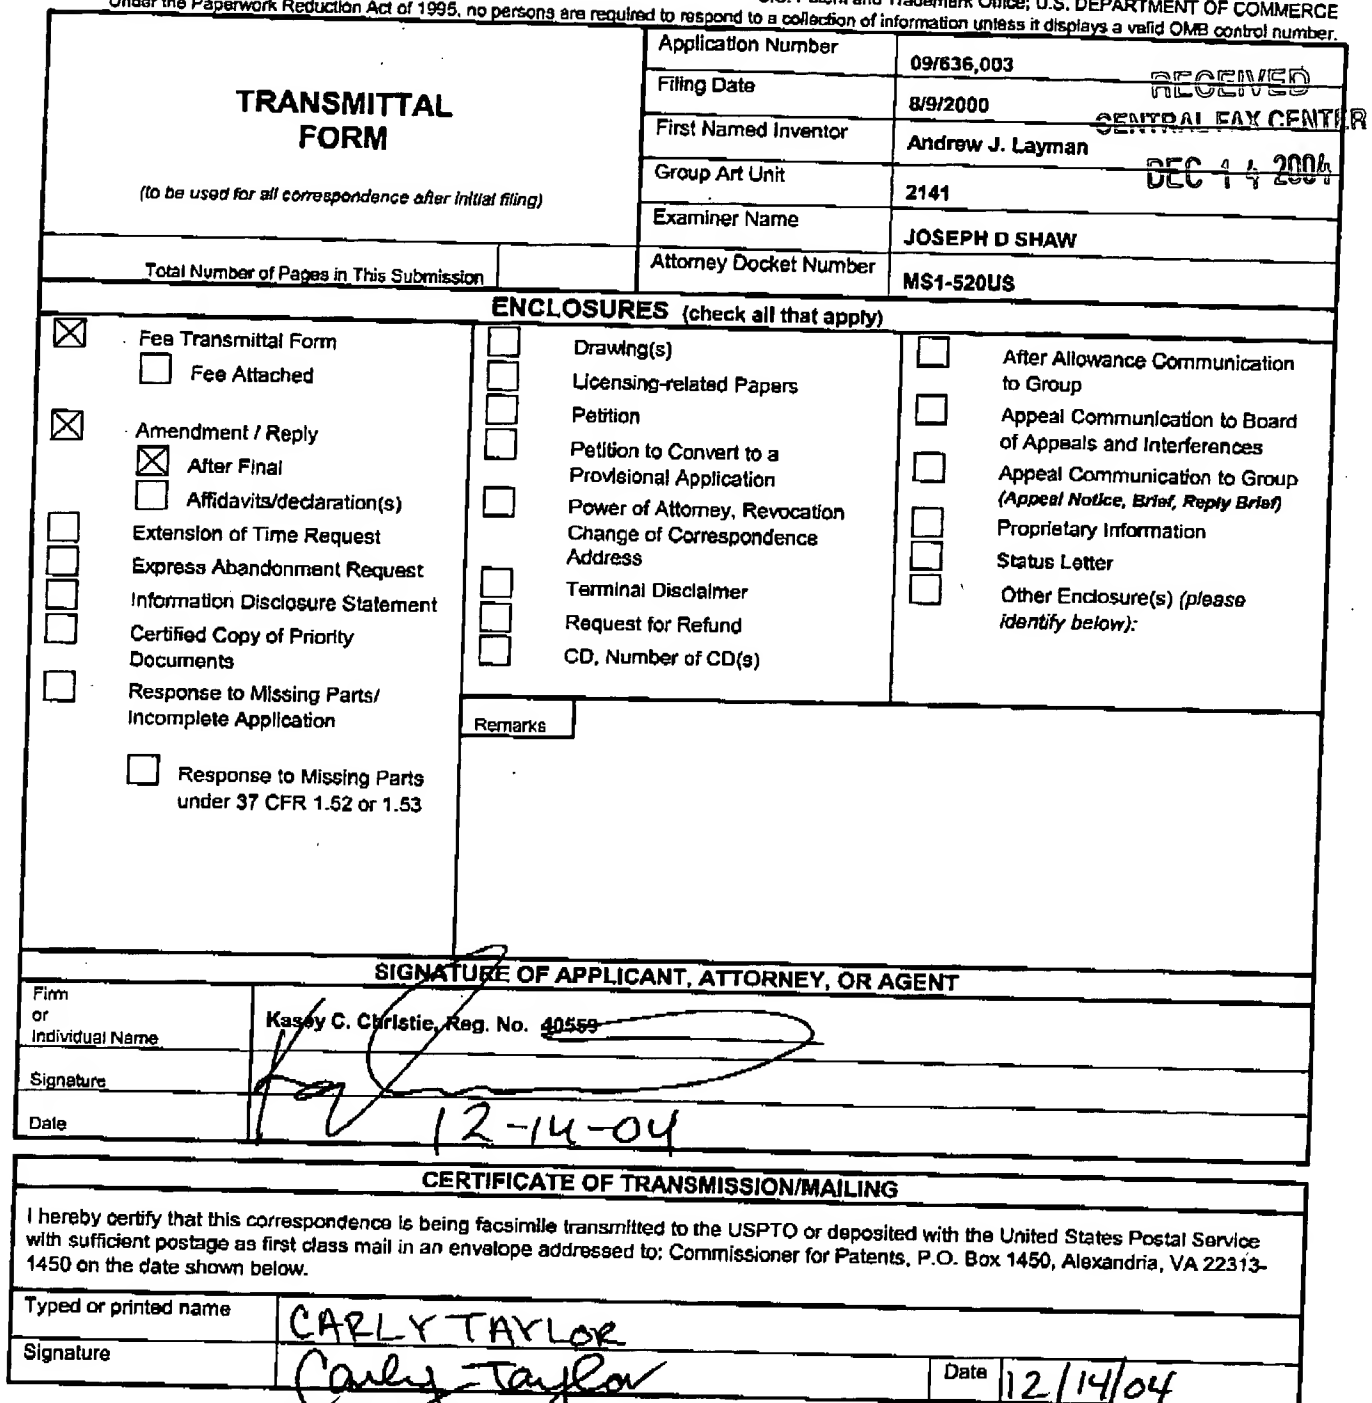 Trademark Office; U.S. DEPARTMENT OF COMMERCE
Under the Paperwork Reduction Act of 1995, no persons are required to respond to a collection of information unless it displays a valid OMB control number.
TRANSMITTAL
FORM
(to be used for all correspondence after initial filing)
Total Number of Pages in This Submission
Application Number
09/636,003
Filing Date
8/9/2000
First Named Inventor
Andrew J. Layman
Group Art Unit
2141
Examiner Name
JOSEPH D SHAW
Attorney Docket Number
MS1-520US
RECEIVED
CENTRAL FAX CENTER
DEC 14 2004
ENCLOSURES (check all that apply)
Fee Transmittal Form
Fee Attached
Amendment / Reply
After Final
Affidavits/declaration(s)
Extension of Time Request
Express Abandonment Request
Information Disclosure Statement
Certified Copy of Priority
Documents
Response to Missing Parts/
Incomplete Application
Response to Missing Parts
under 37 CFR 1.52 or 1.53
Drawing(s)
Licensing-related Papers
Petition
Petition to Convert to a
Provisional Application
Power of Attorney, Revocation
Change of Correspondence
Address
Terminal Disclaimer
Request for Refund
CD, Number of CD(s)
After Allowance Communication
to Group
Appeal Communication to Board
of Appeals and Interferences
Appeal Communication to Group
(Appeal Notice, Brief, Reply Brief)
Proprietary Information
Status Letter
Other Enclosure(s) (please
identify below):
Remarks
SIGNATURE OF APPLICANT, ATTORNEY, OR AGENT
Firm
or
Individual Name
Kasey C. Christie, Reg. No. 40559
Signature
Date
12-14-04
CERTIFICATE OF TRANSMISSION/MAILING
I hereby certify that this correspondence is being facsimile transmitted to the USPTO or deposited with the United States Postal Service
with sufficient postage as first class mail in an envelope addressed to: Commissioner for Patents, P.O. Box 1450, Alexandria, VA 22313-
1450 on the date shown below.
Typed or printed name
CARLY TAYLOR
Signature
Carly Taylor
Date
12/14/04